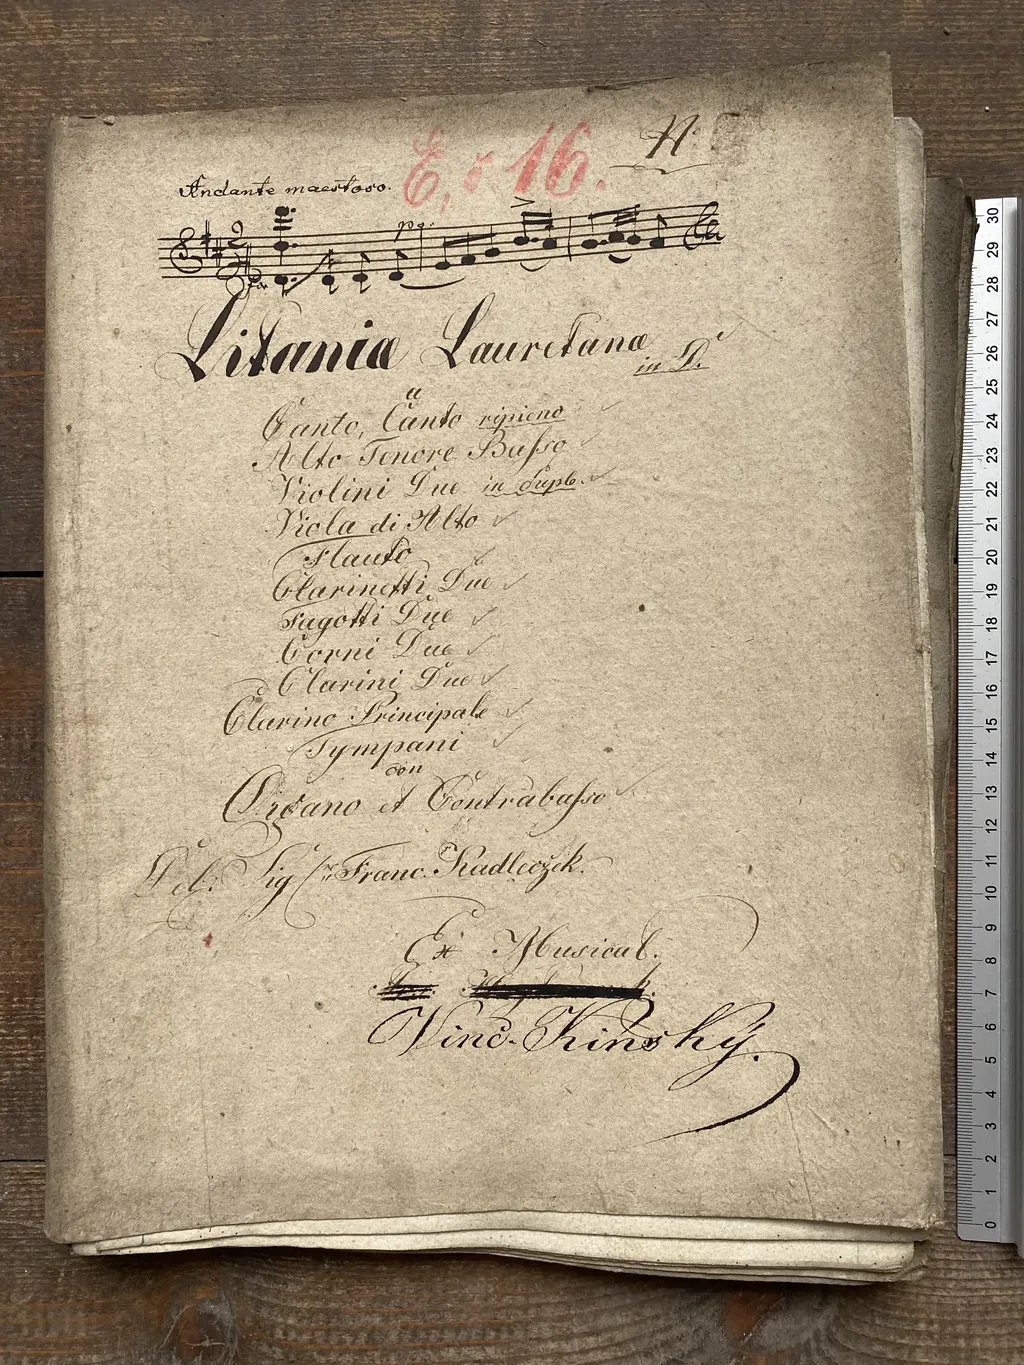 E, 16.
Andante maestoso.
Litaniæ Lauretanæ in D.
a
Canto, Canto ripieno
Alto Tenore Basso
Violini Due in Dupl.
Viola di Alto
Flauto
Clarinetti Due
Fagotti Due
Corni Due
Clarini Due
Clarino Principale
Tympani
con
Organo et Contrabasso
Del: Sig Franc. Kadleczek.
Ex Musical.
Vinc. Kinský.
30
29
28
27
26
25
24
23
22
21
20
19
18
17
16
15
14
13
12
11
10
9
8
7
6
5
4
3
2
1
0